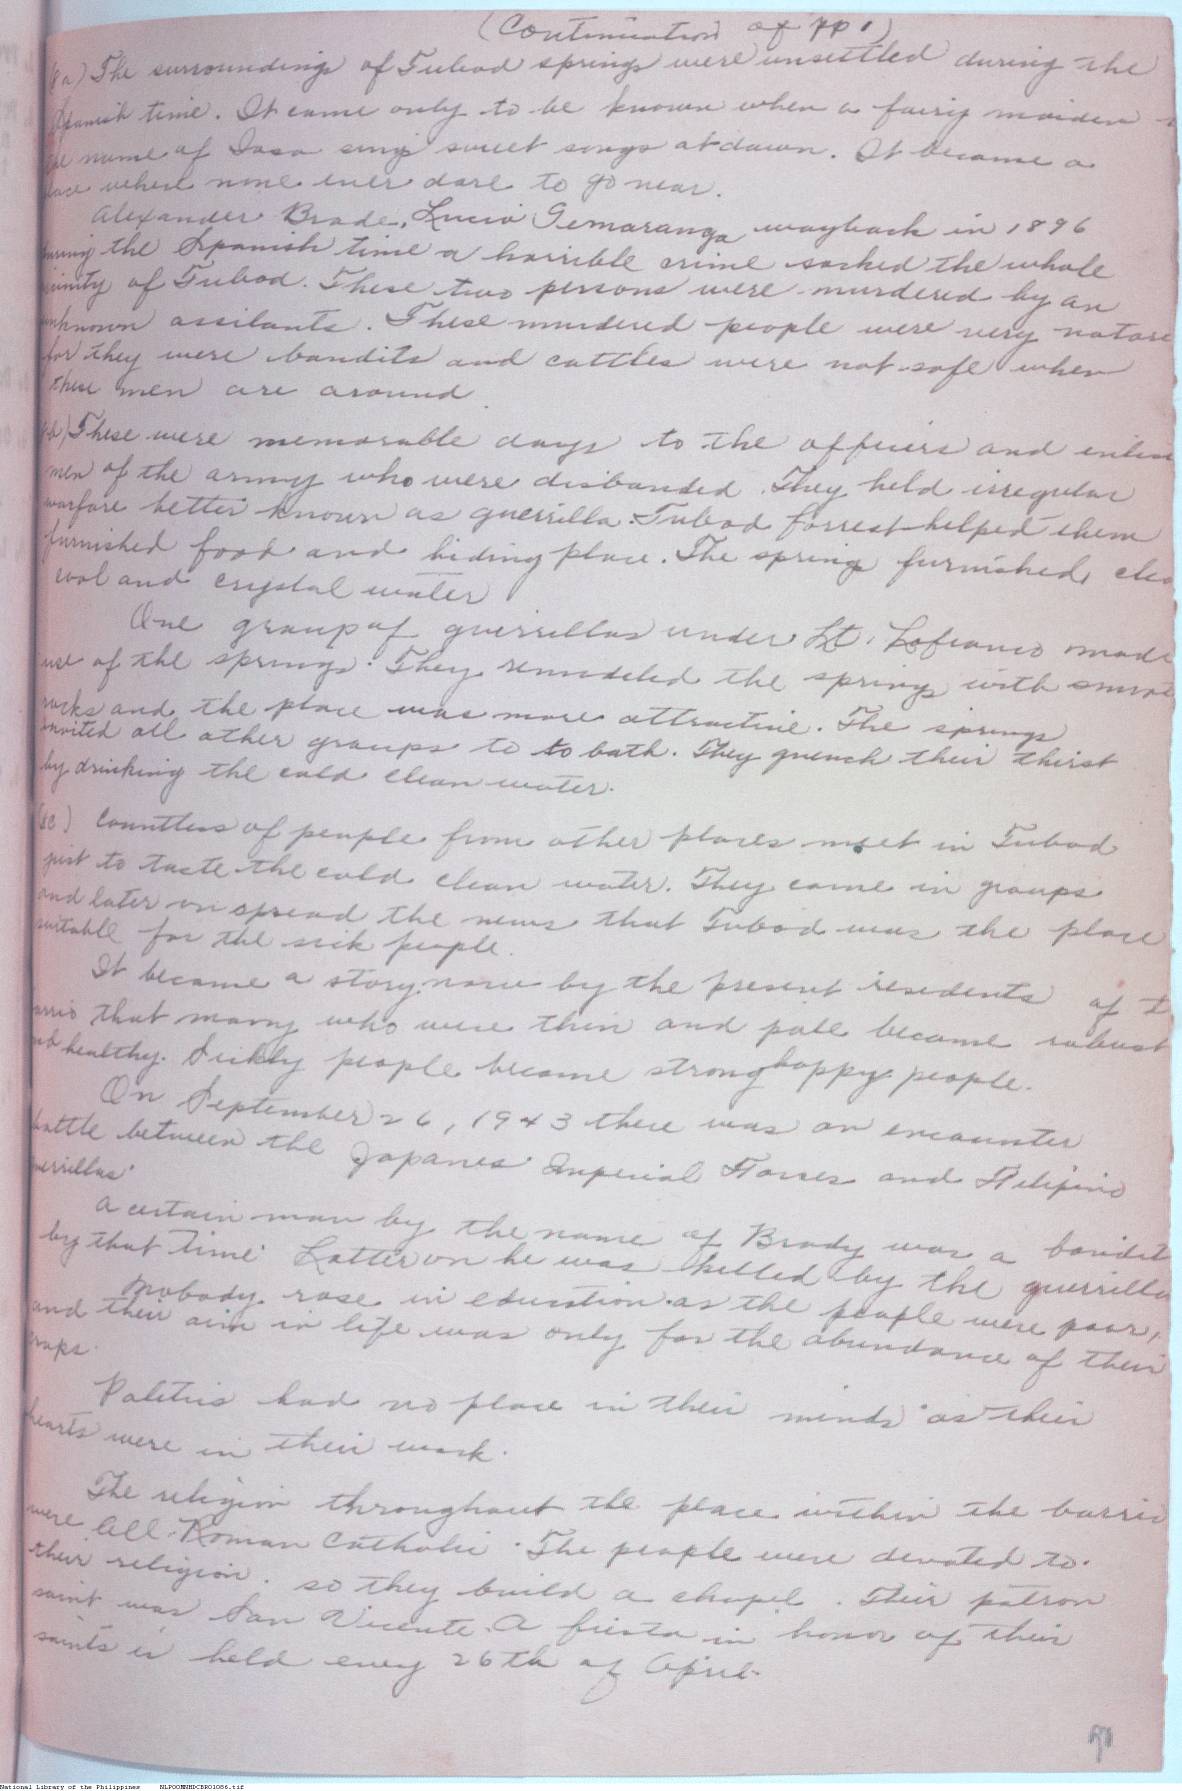 (Continuation of pp 1)
8a) The surroundings of Tubod springs were unsettled during the
Spanish time. It came only to be known when a fairy maiden
the name of Iasa sing sweet songs at dawn. It became a
place where none ever dare to go near.
Alexander Brade, Lucio Gemaranga wayback in 1896
during the Spanish time a horrible crime socked the whole
vicinity of Tubod. These two persons were murdered by an
unknown assilants. These murdered people were very notori
for they were bandits and cattles were not safe when
these men are around
8b) These were memorable days to the officers and enlis
men of the army who were disbanded. They held irregular
warfare better known as guerrilla. Tubod forrest helped them
furnished food and hiding place. The spring furnished clea
cool and crystal water
One group of guerrillas under Lt. Lofranco made
use of the springs. They remodeled the springs with
rocks and the place was more attractive. The springs
invited all other groups to to bath. They quench their thirst
by drinking the cold clean water.
(8c) Countless of people from other places meet in Tubod
just to taste the cold clean water. They came in groups
and later on spread the news that Tubod was the place
suitable for the sick people.
It became a story now by the present residents of t
barrio that many who were thin and pale became robust
and healthy. Sickly people became strong happy people.
On September 26, 1943 there was an encounter
battle between the Japanes Imperial Forces and Filipino
guerrillas.
A certain man by the name of Brady was a bandit
by that time. Latter on he was killed by the guerrilla
Nobody rose in education as the people were poor,
and their aim in life was only for the abundance of their
crops.
Politics had no place in their minds as their
hearts were in their work.
The religion throughout the place within the barrio
were all Roman Catholic. The people were devoted to
their religion. so they build a chapel. Their patron
saint was San Vicente. A fiesta in honor of their
saints is held every 26th of April.
National Library of the Philippines NLPOOMNHDCBR01086.tif